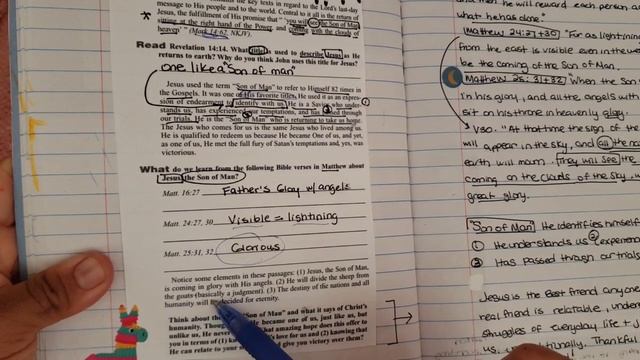 message to His people and to the world. Central to it all is the return of
Jesus, the fulfillment of His promise that "you will see the Son of Man
sitting at the right hand of the Power, and coming with the clouds of
heaven" (Mark 14:62, NKJV).
Read Revelation 14:14. What title is used to describe Jesus as He
returns to earth? Why do you think John uses this title for Jesus?
one like a "Son of man"
Jesus used the term "Son of Man" to refer to Himself 82 times in
the Gospels. It was one of His favorite titles. He used it as an expres-
sion of endearment to identify with us. He is a Savior who under-
stands us, has experienced our temptations, and has passed through
our trials. He is the "Son of Man" who is returning to take us home.
The Jesus who comes for us is the same Jesus who lived among us.
He is qualified to redeem us because He became One of us, and yet,
as one of us, He met the full fury of Satan's temptations and, yes, was
victorious.
What do we learn from the following Bible verses in Matthew about
Jesus, the Son of Man?
Matt. 16:27 Father's Glory w/ angels
Matt. 24:27, 30 Visible = lightining
Matt. 25:31, 32 Glorious
Notice some elements in these passages: (1) Jesus, the Son of Man,
is coming in glory with His angels. (2) He will divide the sheep from
the goats (basically a judgment). (3) The destiny of the nations and all
humanity will be decided for eternity.
Think about the "Son of Man" and what it says of Christ's
humanity. He became one of us, just like us, but
unlike us, He never What amazing hope does this offer to
you in terms of (1) love for us and (2) knowing that
He can relate to your and give you victory over them?
and then he will reward each person
what he has done."
Matthew 24:27+30 "For as lightning
from the east is visible even in the we
be the coming of the Son of Man.
Matthew 25:31+32 "When the Son
in his glory, and all the angels with
sit on his throne in heavenly glory.
V30. "At that time the sign of the
will appear in the sky, and all the na
earth will mourn. They will see the
coming on the clouds of the sky, w
great glory.
"Son of Man" He identifies himself
① He understands us ② experience
③ Has passed through our trials
Jesus is the Best friend anyone
real friend is relatable, understa
struggles of everyday life +